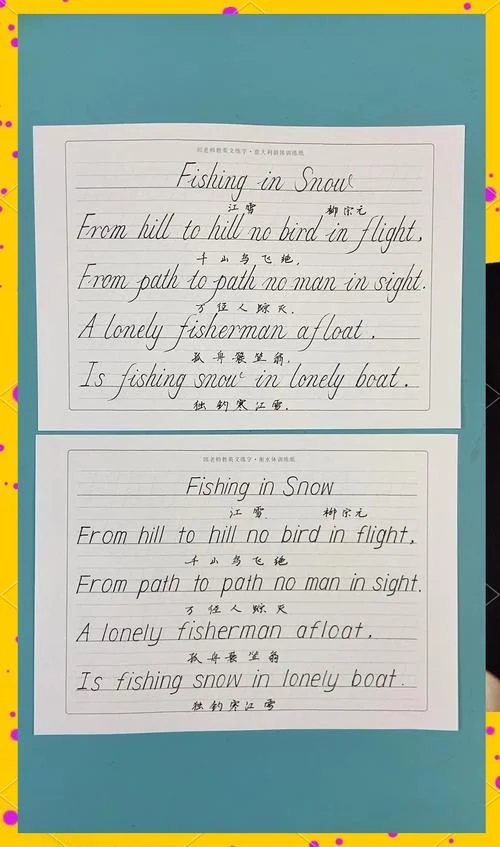 邱老师教英文练字·意大利斜体训练纸
Fishing in Snow
江雪 柳宗元
From hill to hill no bird in flight,
千山鸟飞绝,
From path to path no man in sight.
万径人踪灭.
A lonely fisherman afloat.
孤舟蓑笠翁,
Is fishing snow in lonely boat.
独钓寒江雪.
邱老师教英文练字·衡水体训练纸
Fishing in Snow
江雪 柳宗元
From hill to hill no bird in flight,
千山鸟飞绝
From path to path no man in sight.
万径人踪灭
A lonely fisherman afloat.
孤舟蓑笠翁
Is fishing snow in lonely boat.
独钓寒江雪